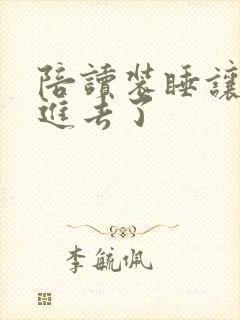 陪讀裝睡讓
進去了
李毓佩